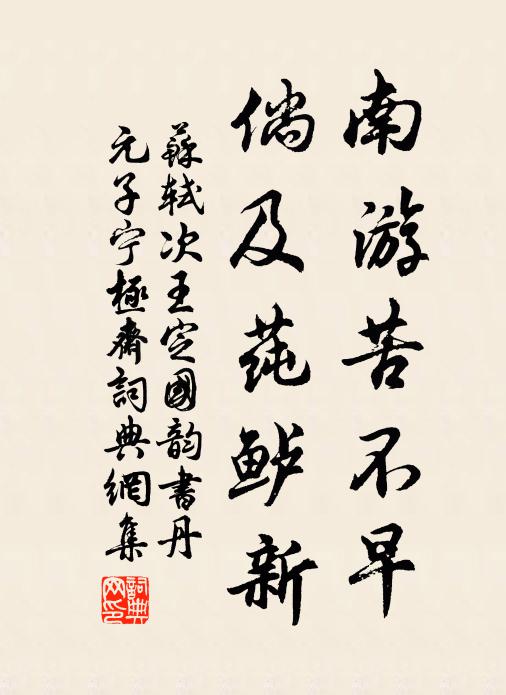 南游苦不早
倘及莼鲈新
蘇軾次王定國韵書丹
元子宁極齋詞典網集
詞典网印